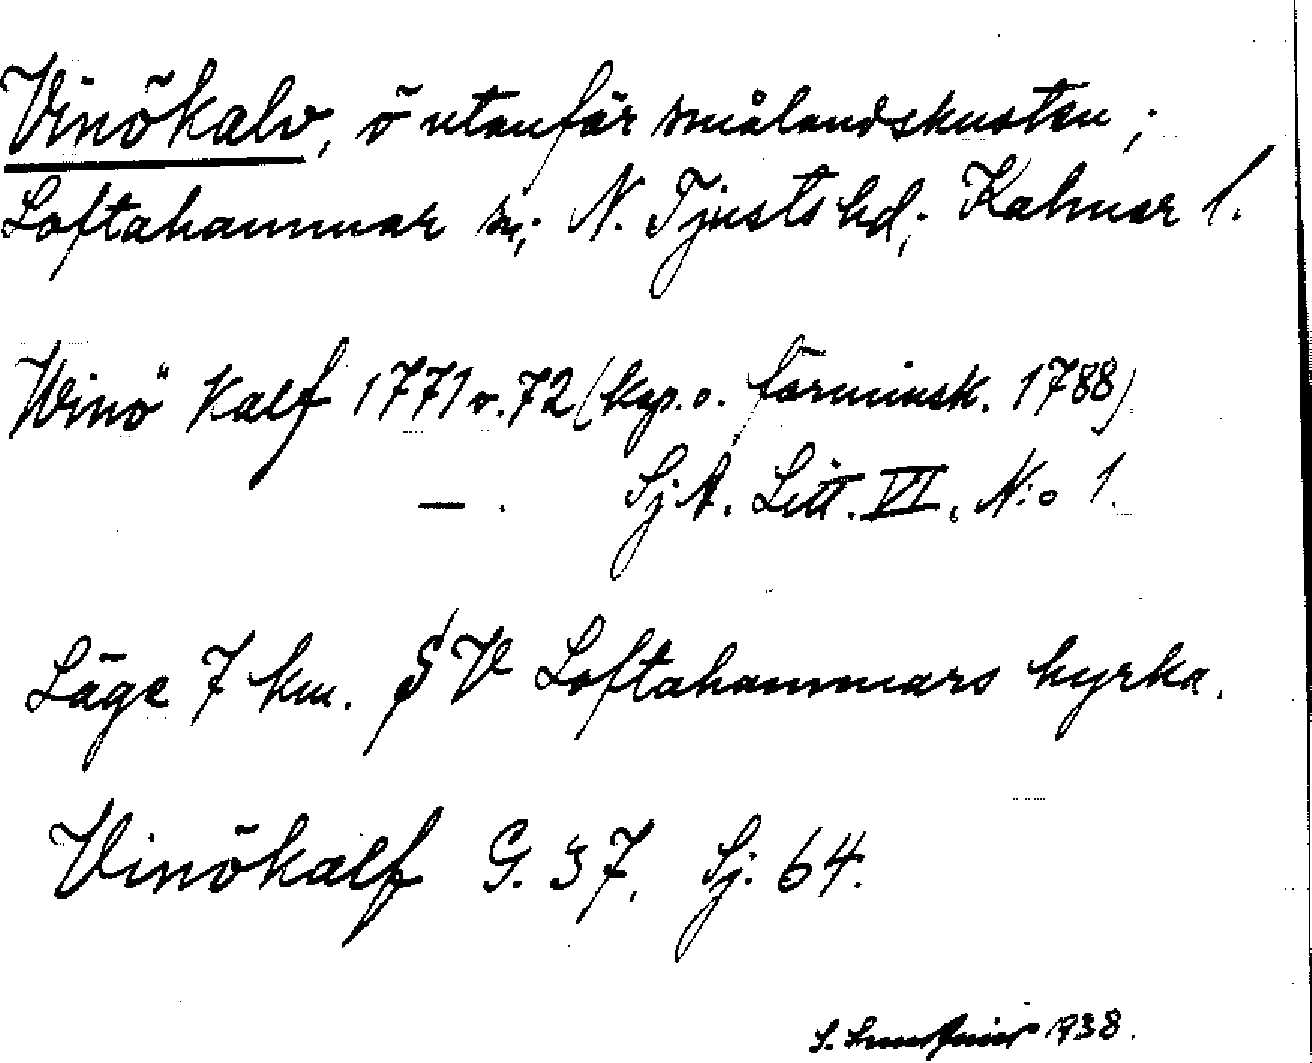 Vinökalv, ö utanför smålandskusten;
Loftahammar sn; N. Tjusts hd; Kalmar l.
Winö Kalf 1771 o. 72 (kop. o. förminsk. 1788)
— . SjA. Litt. VI, N:o 1.
Läge 7 km. SV Loftahammars kyrka.
Vinökalf G. 37. Sj. 64.
S. 1938.